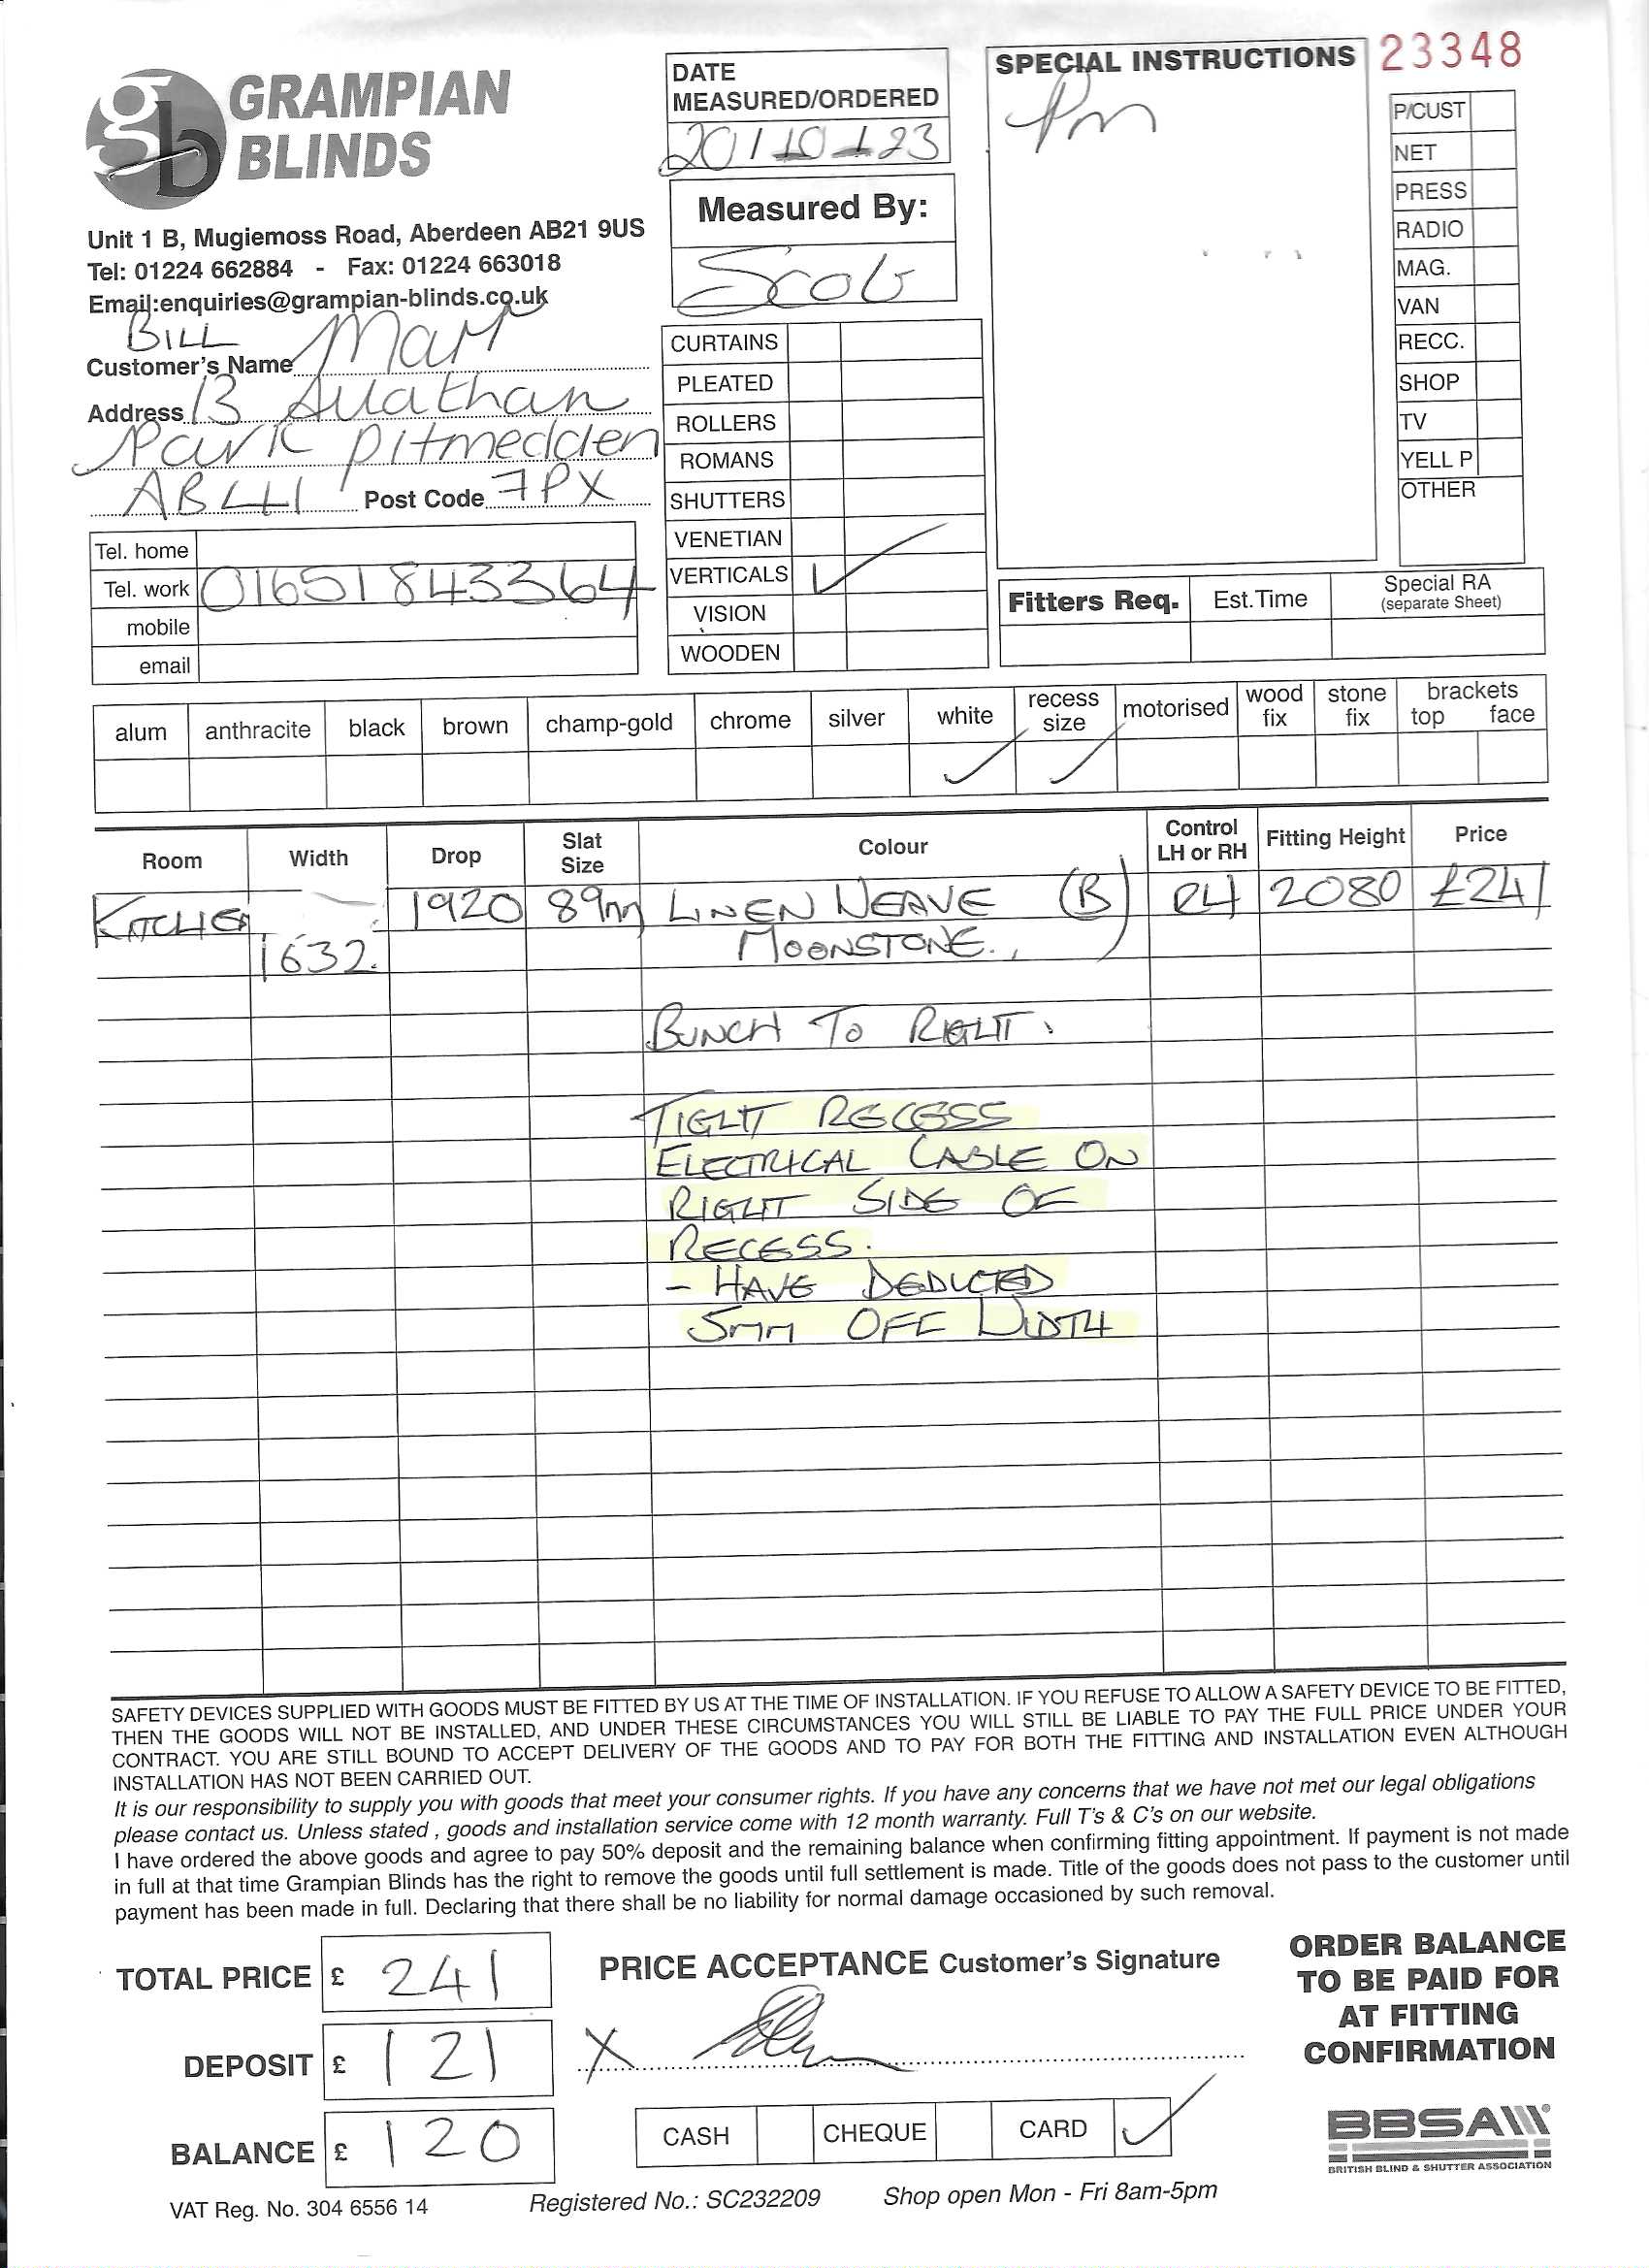 GRAMPIAN
BLINDS
Unit 1 B, Mugiemoss Road, Aberdeen AB21 9US
Tel: 01224 662884 - Fax: 01224 663018
Email:enquiries@grampian-blinds.co.uk
DATE
MEASURED/ORDERED
20/10/23
Measured By:
SPECIAL INSTRUCTIONS
Pm
23348
P/CUST
NET
PRESS
RADIO
MAG.
VAN
RECC.
SHOP
TV
YELL P
OTHER
BILL
Customer's Name Marr
Address 13
Park Pitmedden
AB41 Post Code 7PX
Tel. home
Tel. work 01651843364
mobile
email
CURTAINS
PLEATED
ROLLERS
ROMANS
SHUTTERS
VENETIAN
VERTICALS ✓
VISION
WOODEN
Fitters Req. Est.Time Special RA
(separate Sheet)
alum anthracite black brown champ-gold chrome silver white recess size motorised wood fix stone fix brackets top face
✓ ✓
Room Width Drop Slat Size Colour Control LH or RH Fitting Height Price
KITCHEN 1920 89mm LINEN WEAVE (B) RH 2080 £241
1632. MOONSTONE.
BUNCH TO RIGHT.
TIGHT RECESS
ELECTRICAL CABLE ON
RIGHT SIDE OF
RECESS.
- HAVE DEDUCTED
5mm OFF WIDTH
SAFETY DEVICES SUPPLIED WITH GOODS MUST BE FITTED BY US AT THE TIME OF INSTALLATION. IF YOU REFUSE TO ALLOW A SAFETY DEVICE TO BE FITTED,
THEN THE GOODS WILL NOT BE INSTALLED, AND UNDER THESE CIRCUMSTANCES YOU WILL STILL BE LIABLE TO PAY THE FULL PRICE UNDER YOUR
CONTRACT. YOU ARE STILL BOUND TO ACCEPT DELIVERY OF THE GOODS AND TO PAY FOR BOTH THE FITTING AND INSTALLATION EVEN ALTHOUGH
INSTALLATION HAS NOT BEEN CARRIED OUT.
It is our responsibility to supply you with goods that meet your consumer rights. If you have any concerns that we have not met our legal obligations
please contact us. Unless stated , goods and installation service come with 12 month warranty. Full T's & C's on our website.
I have ordered the above goods and agree to pay 50% deposit and the remaining balance when confirming fitting appointment. If payment is not made
in full at that time Grampian Blinds has the right to remove the goods until full settlement is made. Title of the goods does not pass to the customer until
payment has been made in full. Declaring that there shall be no liability for normal damage occasioned by such removal.
TOTAL PRICE £ 241
DEPOSIT £ 121
BALANCE £ 120
PRICE ACCEPTANCE Customer's Signature
X
CASH CHEQUE CARD ✓
ORDER BALANCE
TO BE PAID FOR
AT FITTING
CONFIRMATION
BBSA
BRITISH BLIND & SHUTTER ASSOCIATION
VAT Reg. No. 304 6556 14 Registered No.: SC232209 Shop open Mon - Fri 8am-5pm